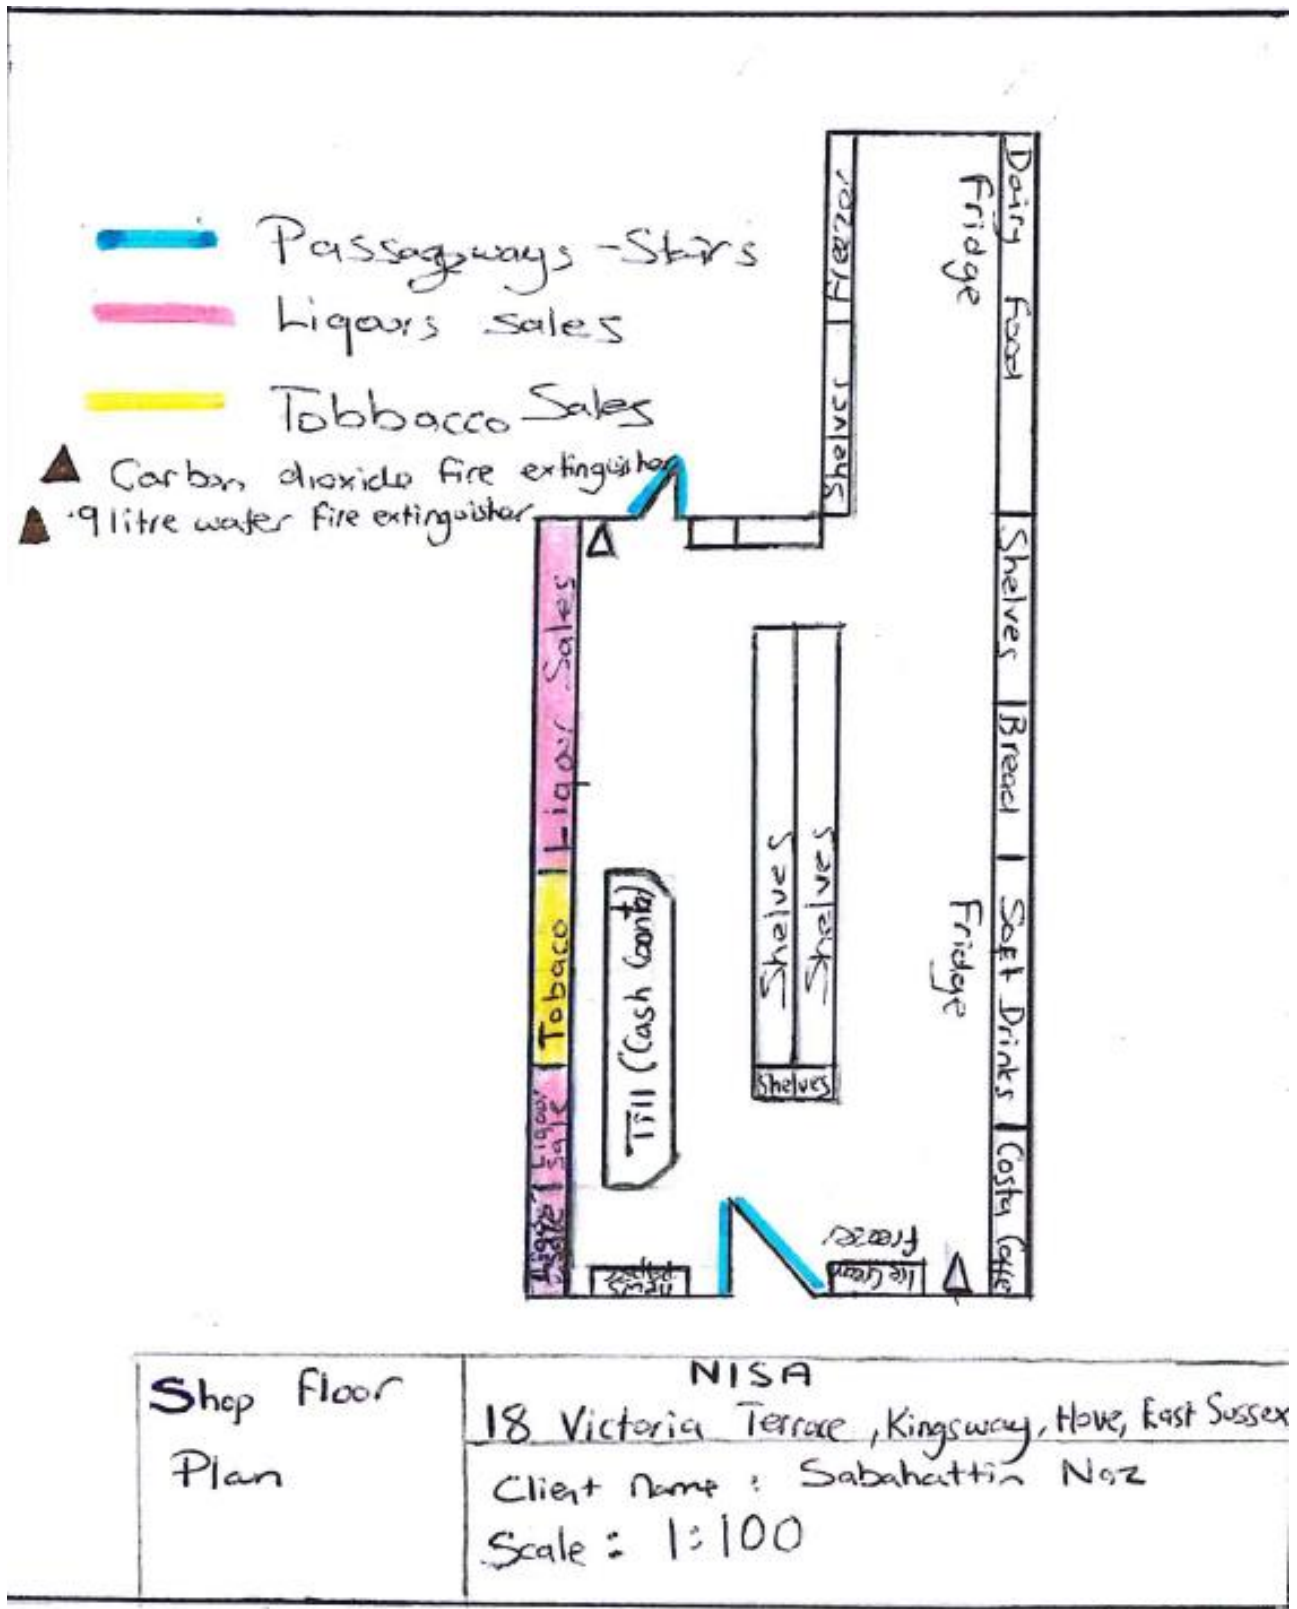 Passagways - Stairs
Liqours sales
Tobbacco Sales
Carbon dioxide fire extinguisher
9 litre water fire extinguisher
Freezor
Shelves
Fridge
Dairy Food
Shelves
Bread
Soft Drinks
Fridge
Costa Coffe
Liqour Sales
Tobaco
Liqour
Sale
Liqour
Sale
Till (Cash Counter)
Shelves
Shelves
Shelves
News
Paper
Freezer
Ice Cream
Shop Floor
Plan
NISA
18 Victoria Terrace, Kingsway, Hove, East Sussex
Client name : Sabahattin Naz
Scale : 1:100